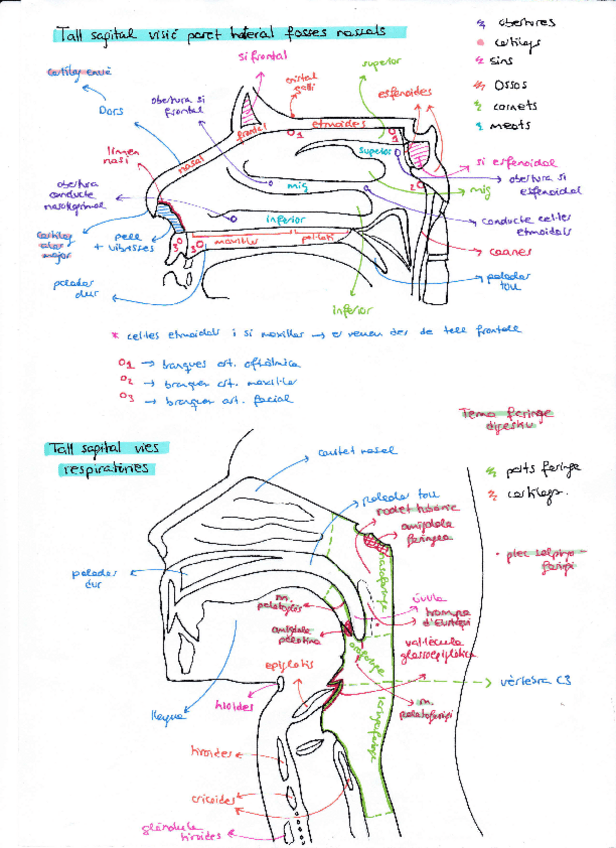 Tall sagital visió paret lateral fosses nasals
obertures
cartílags
sins
Ossos
cornets
meats
si frontal
superior
cartílag envà
cristal
galli
esfenoides
obertura si
frontal
Dors
frontal
etmoides
1
1
limen
nasi
nasal
superior
si esfenoidal
obertura si
esfenoidal
2
mig
mig
obertura
conducte
nasolagrimal
inferior
conducte cel·les
etmoidals
cartílag
alar
major
pell
+ vibrisses
3
3
maxil·lar
palatí
coanes
paladar
dur
paladar
tou
inferior
* cel·les etmoidals i si maxil·lar → es veuen des de tall frontal
O1 → branques art. oftàlmica
O2 → branques art. maxil·lar
O3 → branques art. facial
Tema faringe
digestiu
Tall sagital vies
respiratòries
cavitat nasal
parts faringe
cartílags.
paladar tou
rodet tubàric
amígdala
faríngea
nasofaringe
plec salpingo
faringi
paladar
dur
m.
palatoglòs
úvula
trompa
d'Eustaqui
amígdala
palatina
orofaringe
val·lècula
glossoepiglòtica
epiglotis
vèrtebra C3
hioides
m.
palatofaringi
llengua
laringofaringe
tiroides
cricoides
glàndula
tiroides